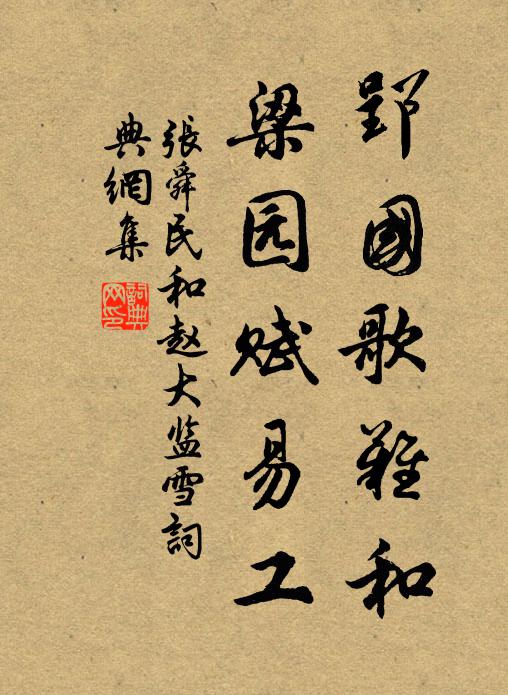 郢國歌難和
梁园赋易工
張舜民和赵大监雪詞
典網集
詞典网印